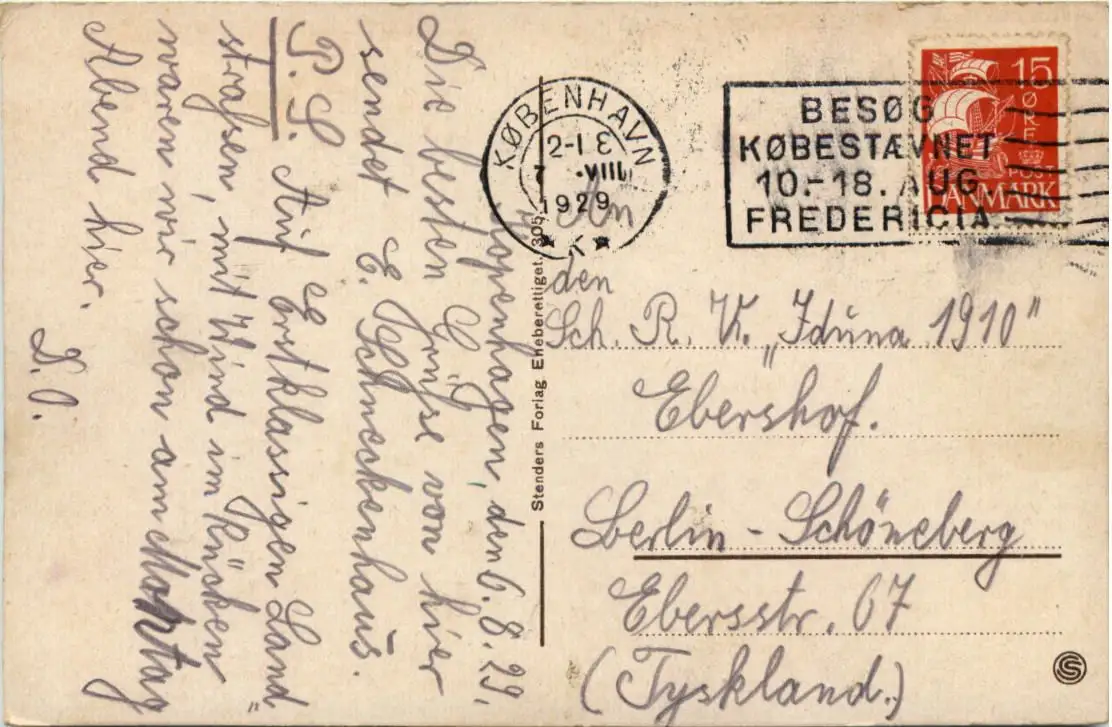 Kopenhagen, den 6. 8. 29.
Die besten Grüsse von hier
sendet E. Schneckenhaus.
P. S. Auf "Erstklassigen Land
strassen", mit Wind im Rücken
waren wir schon am Montag
Abend hier.
D. O.
Stenders Forlag Eneberettiget. 305
KØBENHAVN
2-1 E
7 .VIII
1929
* K *
BESØG
KØBESTÆVNET
10.-18. AUG
FREDERICIA
15
ØRE
POST
DANMARK
An
den
Sch. R. V. „Iduna 1910"
Ebershof.
Berlin - Schöneberg
Ebersstr. 67
(Tyskland.)
S